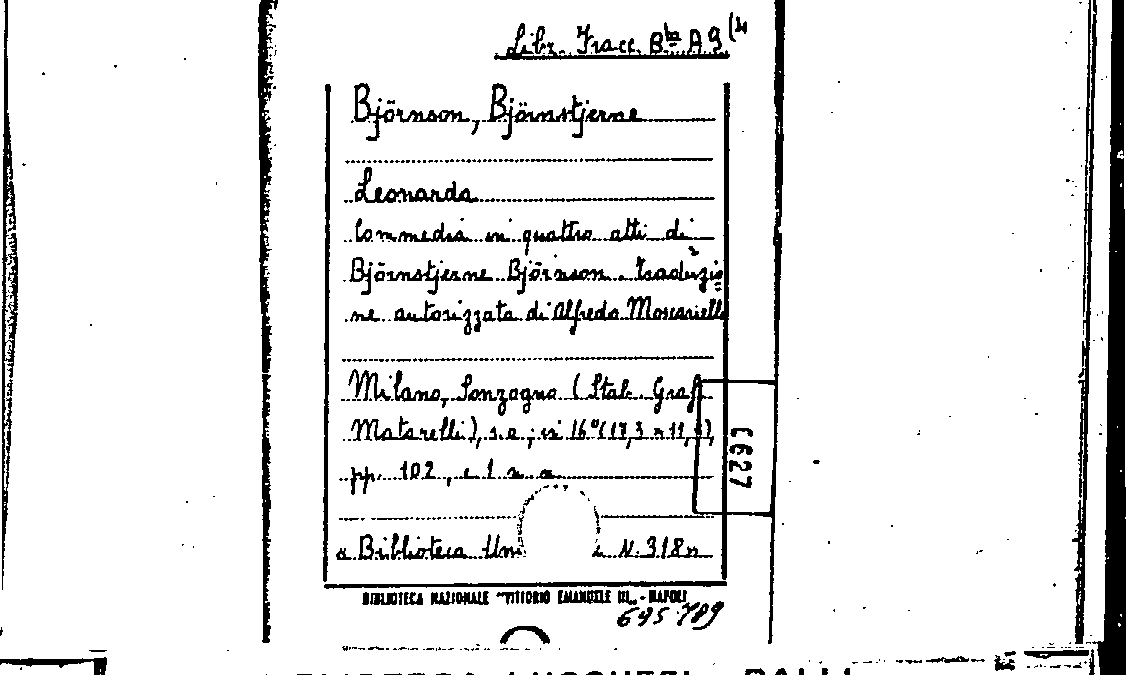 Libr. Tracc. Bta A 9 (4
Björnson, Björnstjerne
Leonarda
Commedia in quattro atti di
Björnstjerne Björnson. Traduzio
ne autorizzata di Alfredo Moscariello
Milano, Sonzogno (Stab. Graf.
Matarelli), s.a.; in 16° (17,3 x 11,
pp. 102, e 1 n. a.
« Biblioteca Uni N. 318 »
6627
BIBLIOTECA NAZIONALE "VITTORIO EMANUELE III" - NAPOLI
695789
LUCCHESI - PALLI